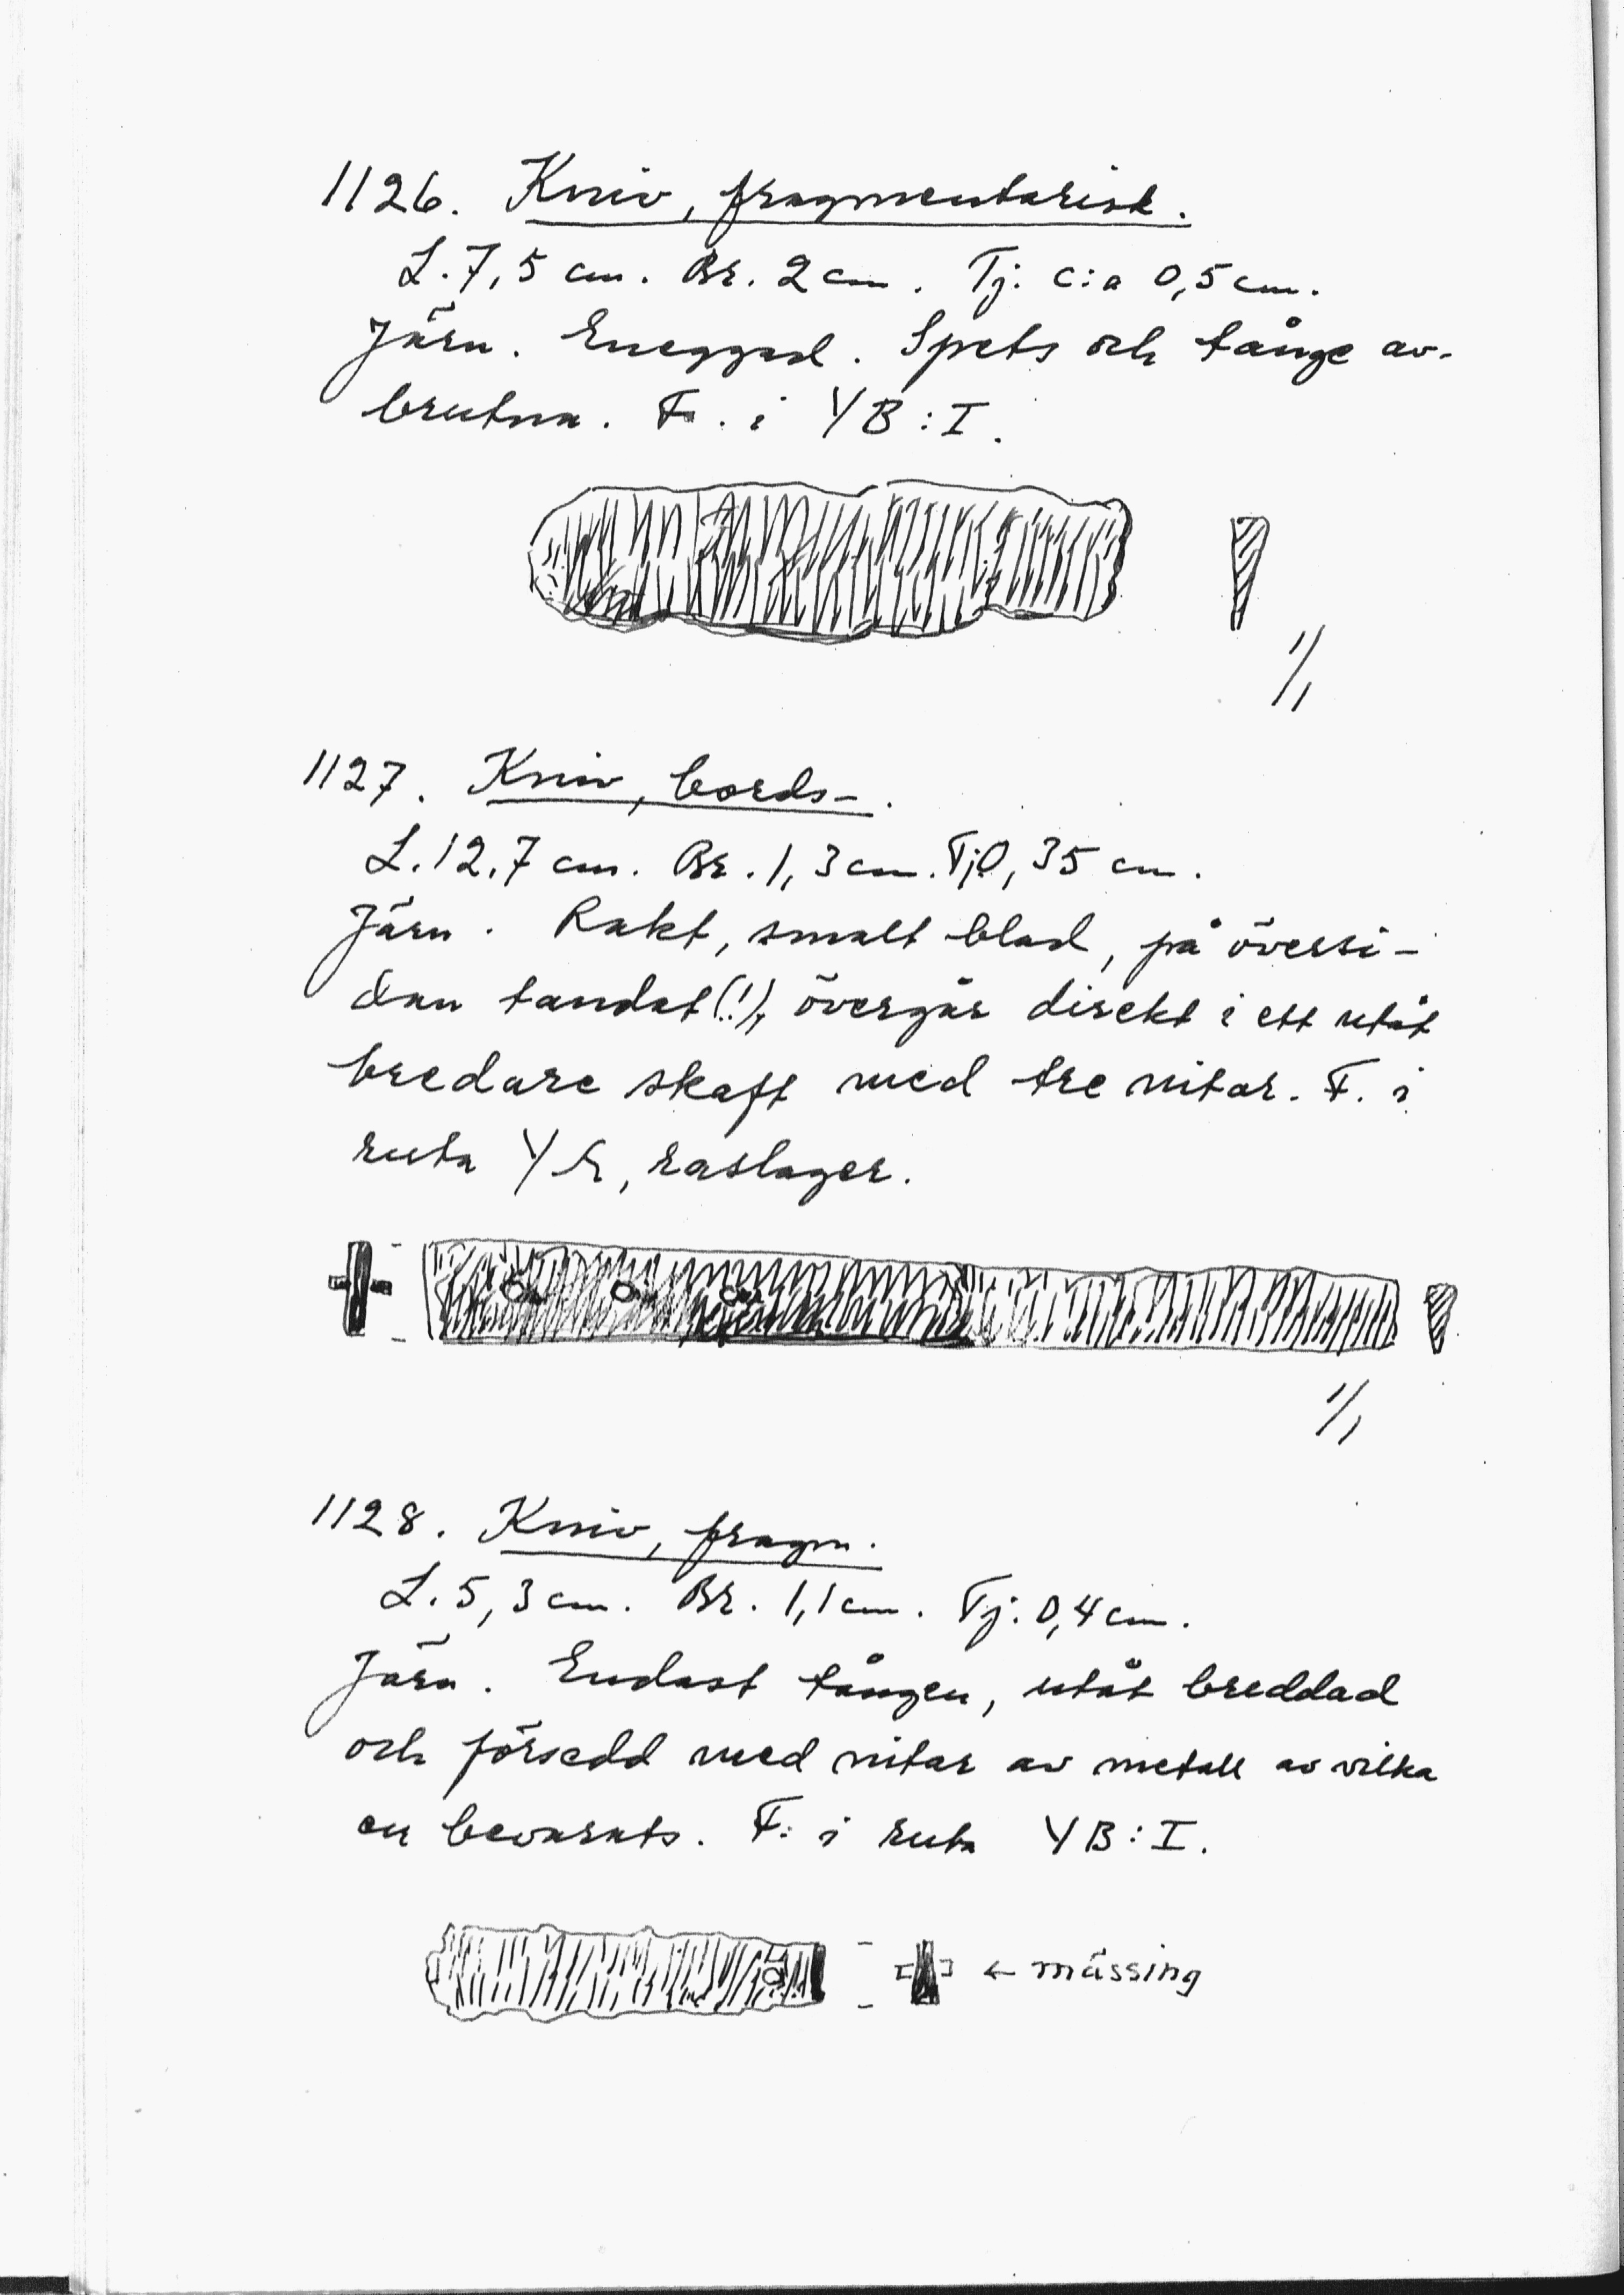 1126. Kniv, fragmentarisk.
L. 7,5 cm. Br. 2 cm. Tj. c:a 0,5 cm.
Järn. Eneggad. Spets och tånge av-
brutna. F. i YB:I.
1/1
1127. Kniv, bords-.
L. 12,7 cm. Br. 1,3 cm. Tj 0,35 cm.
Järn. Rakt, smalt blad, på översi-
dan tandat (!), övergår direkt i ett utåt
bredare skaft med tre nitar. F. i
ruta Y, raslager.
1/1
1128. Kniv, fragm.
L. 5,3 cm. Br. 1,1 cm. Tj. 0,4 cm.
Järn. Endast tången, utåt breddad
och försedd med nitar av metall av vilka
en bevarats. F. i ruta YB:I.
← mässing